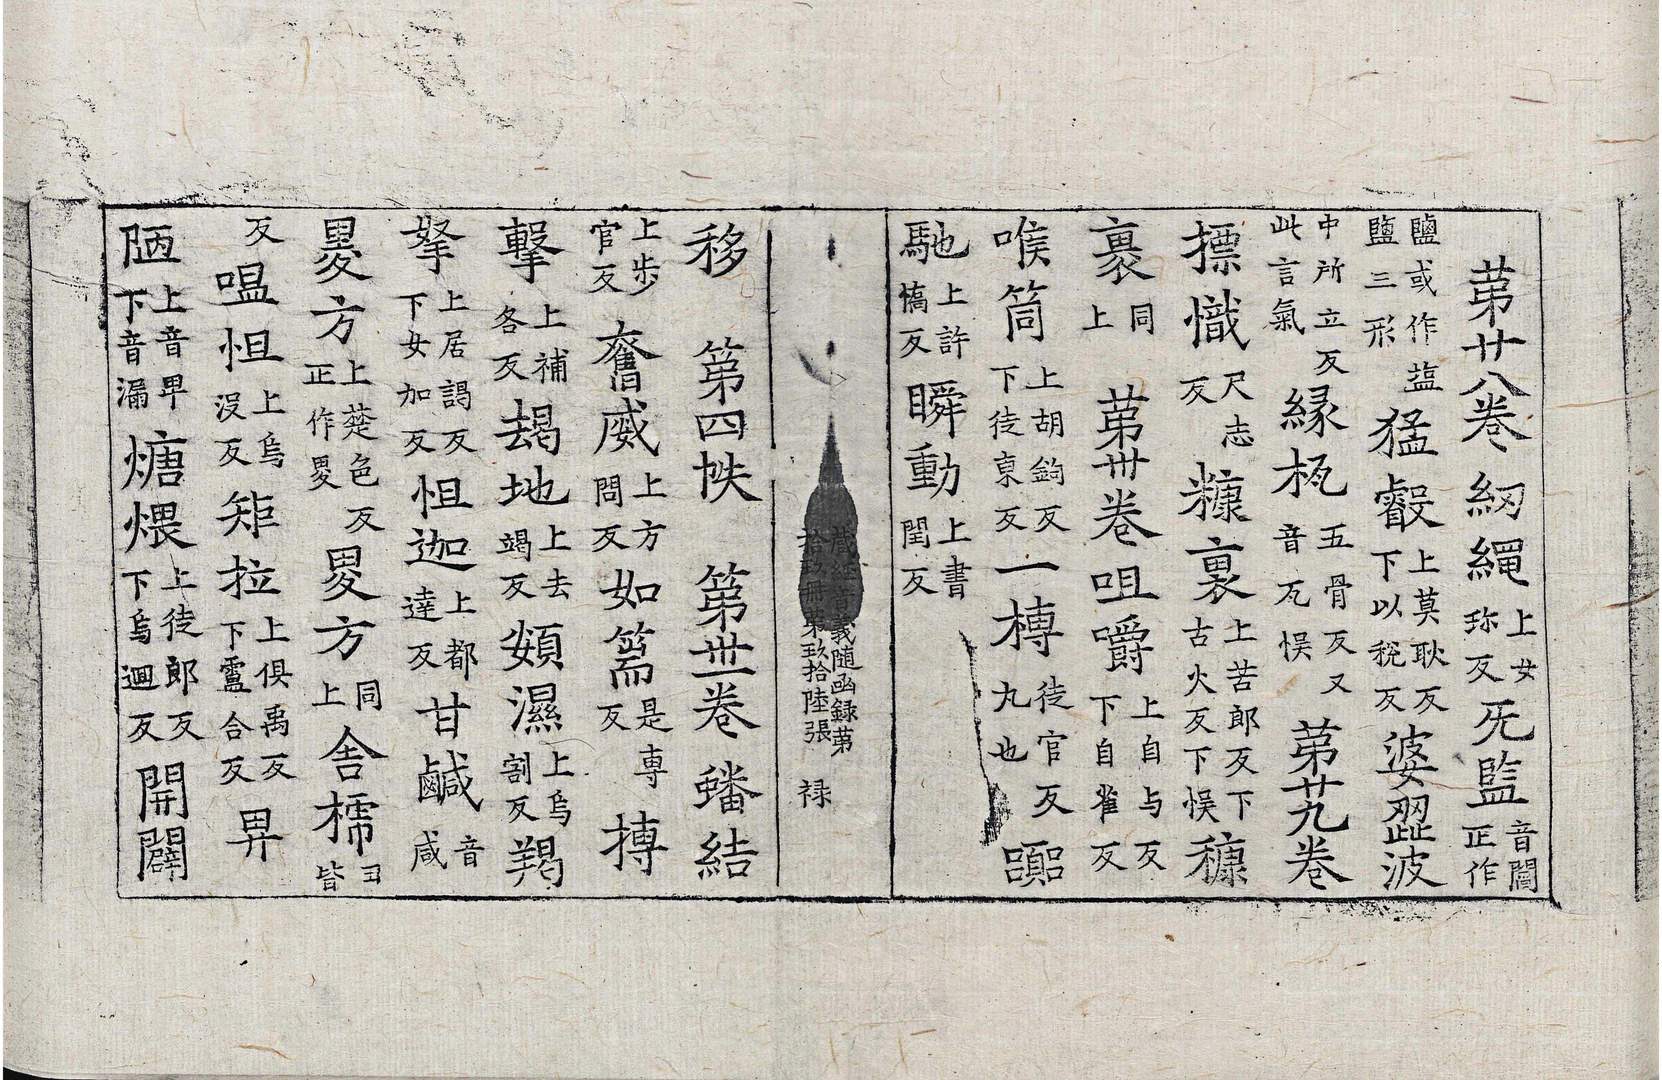 苐廿八卷 紉繩上女珎反 旡監音閻正作
鹽或作塩鹽三形 猛叡上莫耿反下以稅反 婆翍波
中所立反此言氣 縁㧉五骨反又音瓦悮 苐廿九卷
摽幟尺志反 糠裏上苦郎反下古火反下悮 穅
裹同上 苐卅卷 咀嚼上自与反下自雀反
喉筒上胡鉤反下徒東反 一槫徒官反丸也 䶩
馳上許憍反 瞬動上書閏反
藏經音義随函録苐
拾玖冊苐玖拾陸張 禄
移 苐四帙 苐丗一卷 蟠結
上歩官反 奮威上方問反 如篅是專反 搏
擊上補各反 朅地上去竭反 頞濕上乌割反 羯
拏上居謁反下女加反 怛迦上都達反 甘鹹音咸
畟方上楚色反正作畟 畟方同上 舍槗
反 嗢怛上烏沒反 矩拉上俱禹反下盧合反 畀
陋上音畀下音漏 煻煨上徒郎反下烏迴反 開闢